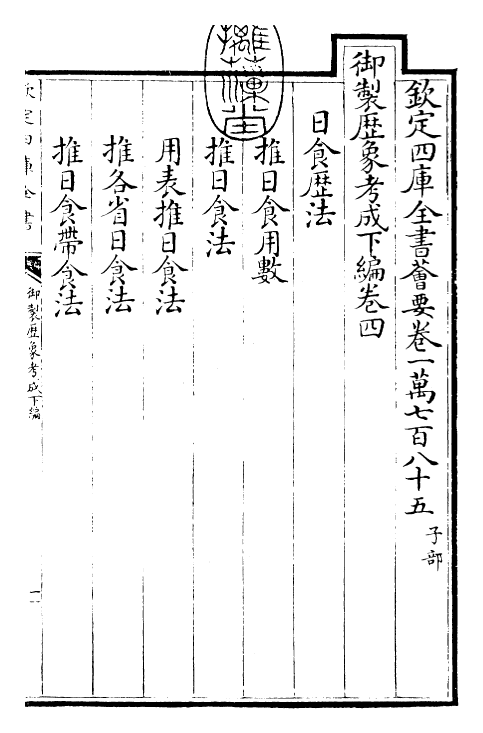 欽定四庫全書薈要卷一萬七百八十五 子部
御製歴象考成下編卷四
日食歴法
推日食用數
推日食法
用表推日食法
推各省日食法
推日食帶食法
欽定四庫全書
御製歴象考成下編
一
摛藻堂